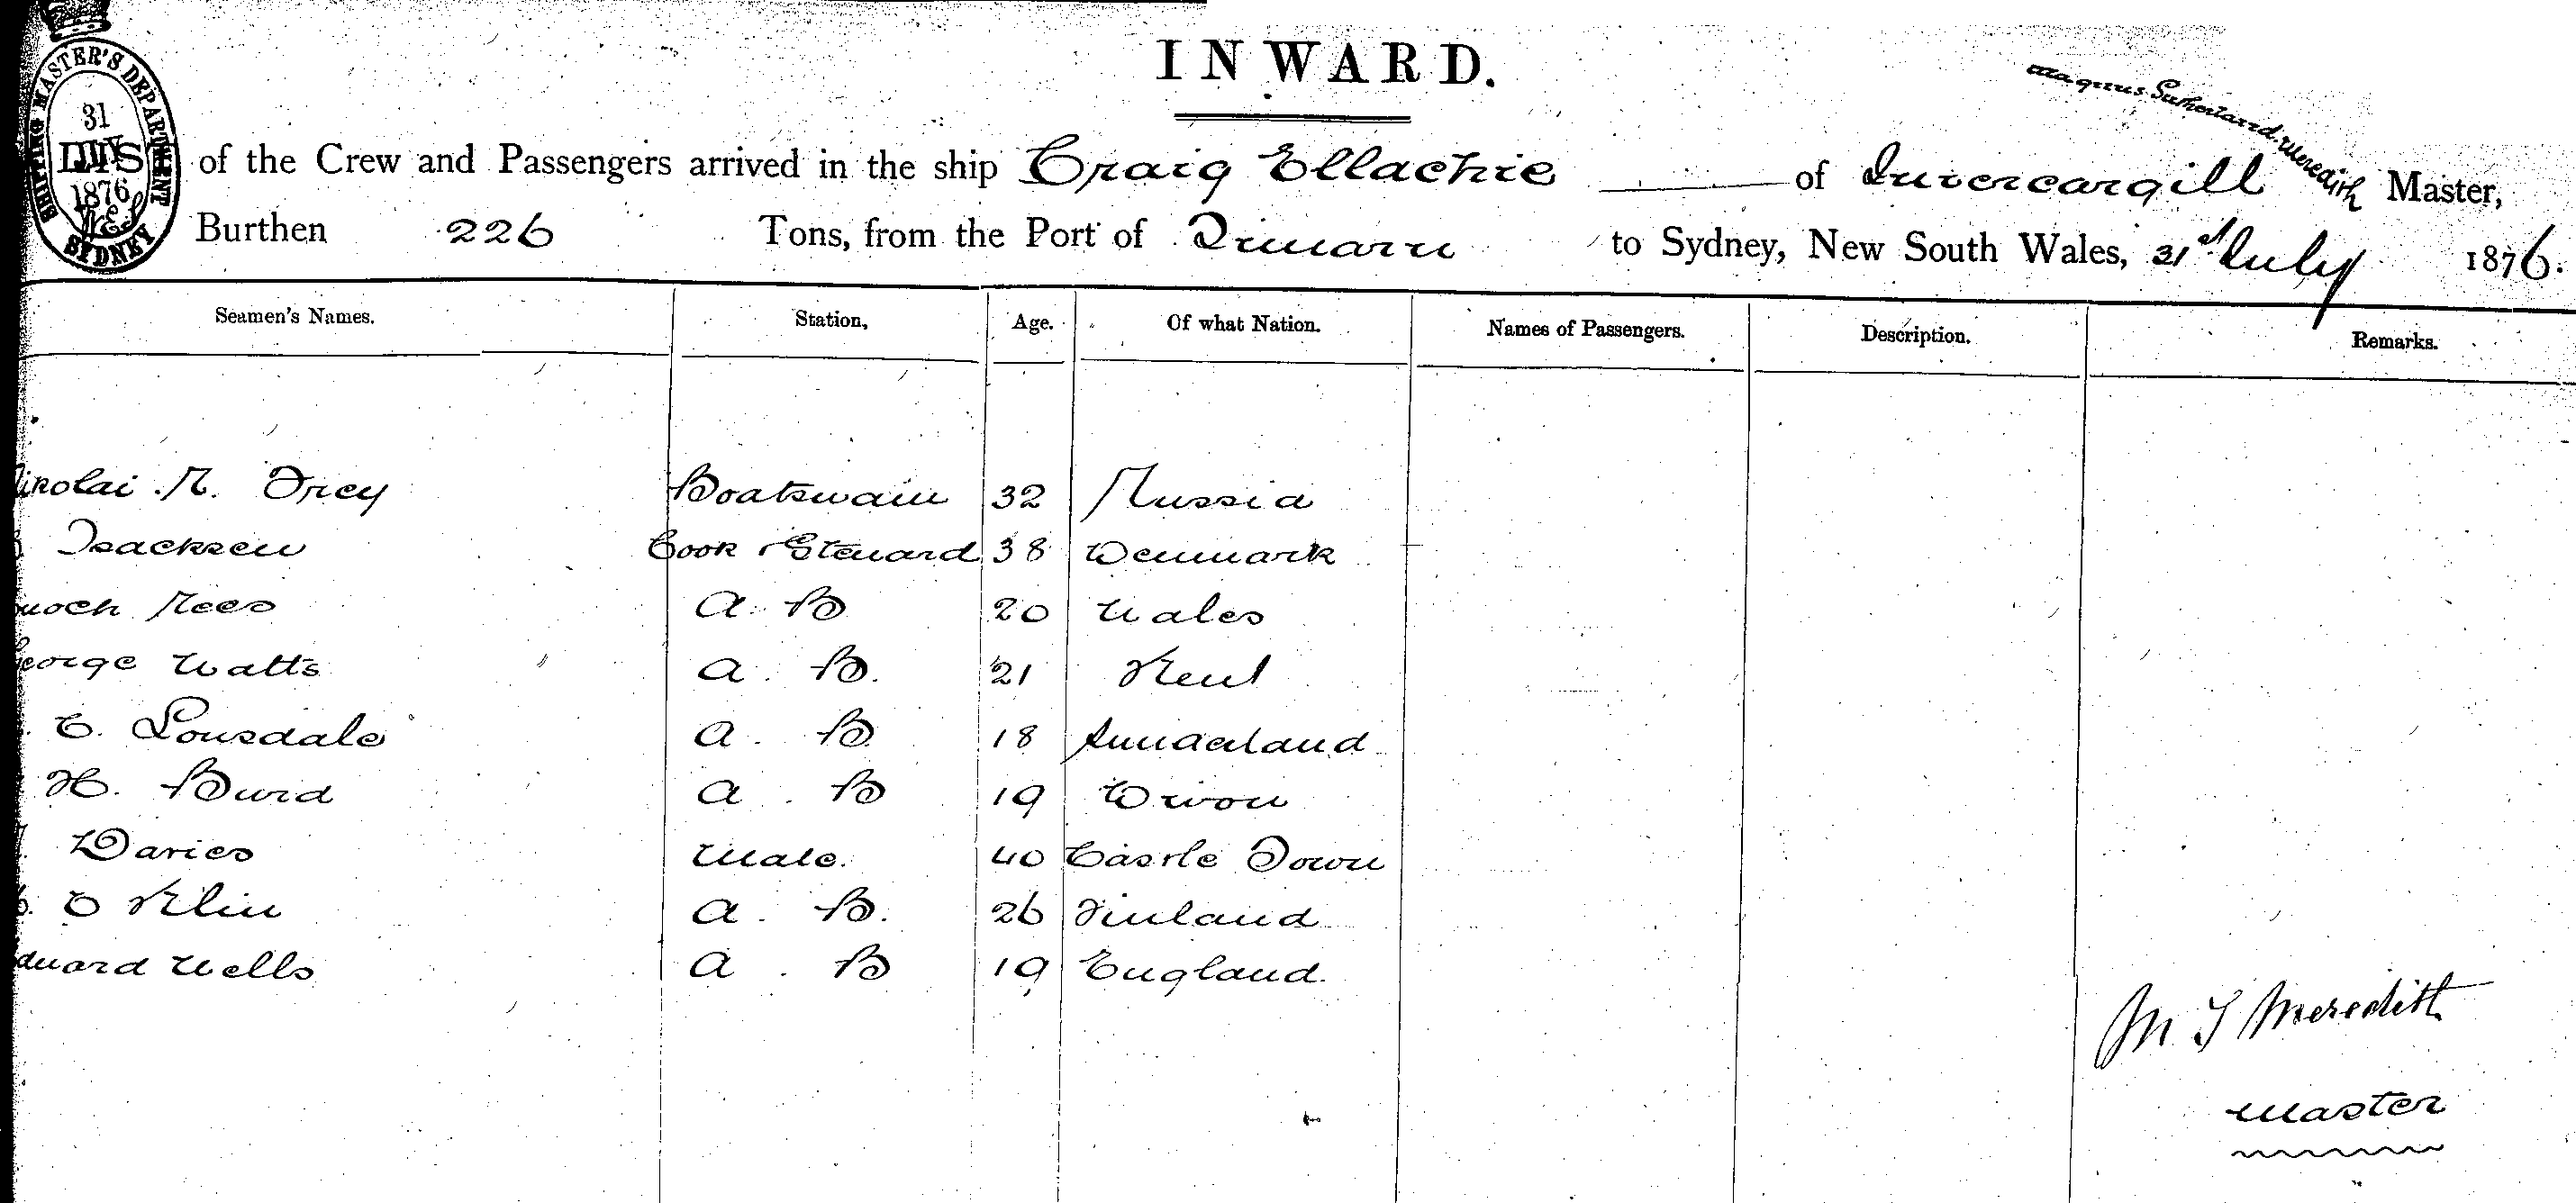 INWARD.
SHIPPING MASTER'S DEPARTMENT
31
1876
SYDNEY
Magnus Sutherland Meredith
of the Crew and Passengers arrived in the ship Craig Ellachie of Invercargill Master,
Burthen 226 Tons, from the Port of Timaru to Sydney, New South Wales, 31st July 1876.
Seamen's Names. Station, Age. Of what Nation. Names of Passengers. Description. Remarks.
Nikolai R. Frey Boatswain 32 Russia
Isacksen Cook & Steward 38 Denmark
Enoch Rees A. B 20 Wales
George Watts A. B. 21 Kent
C. Lonsdale A. B. 18 Sunderland
H. Burd A. B 19 Devon
Davies Mate. 40 Castle Town
O Klin A. B. 26 Finland
Edward Wells A. B 19 England.
M S Meredith
Master